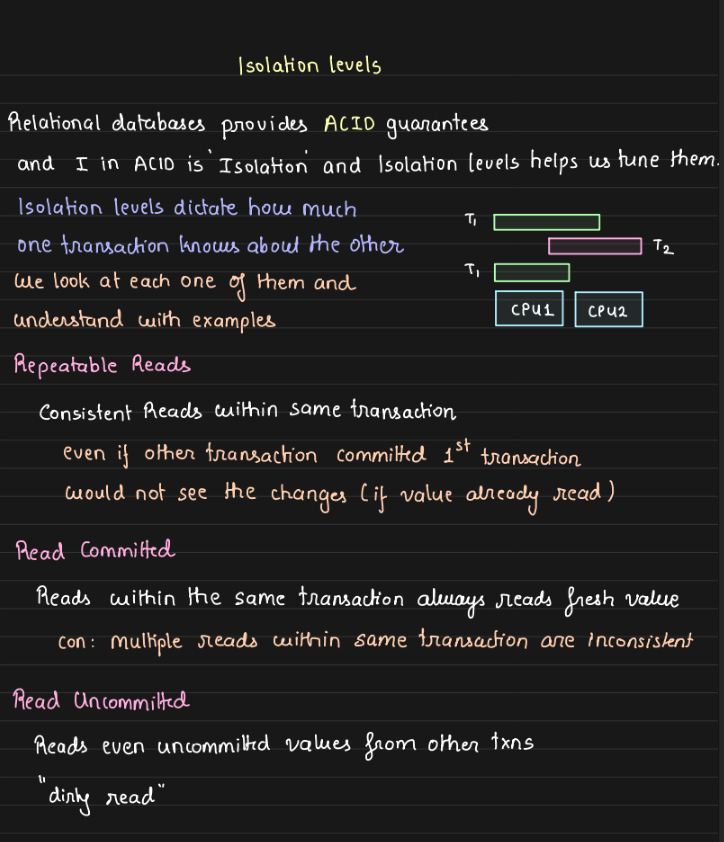 Isolation levels
Relational databases provides ACID guarantees
and I in ACID is 'Isolation' and Isolation levels helps us tune them.
Isolation levels dictate how much
one transaction knows about the other
we look at each one of them and
understand with examples
T1
T2
T1
CPU1 CPU2
Repeatable Reads
Consistent Reads within same transaction
even if other transaction committed 1st transaction
would not see the changes (if value already read)
Read Committed
Reads within the same transaction always reads fresh value
con: multiple reads within same transaction are inconsistent
Read Uncommitted
Reads even uncommitted values from other txns
"dirty read"